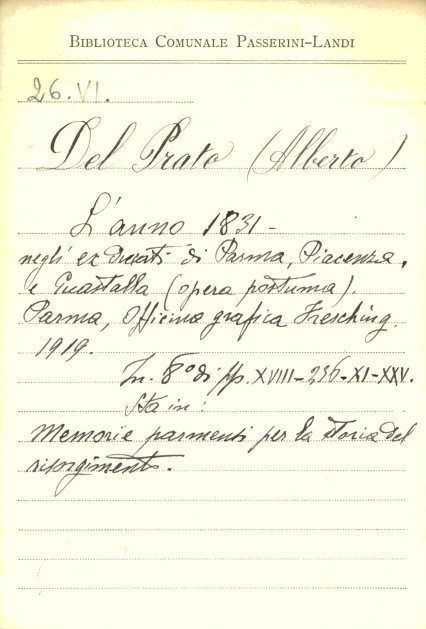 BIBLIOTECA COMUNALE PASSERINI-LANDI
26.VI.
Del Prato (Alberto)
L'anno 1831 -
negli ex Ducati di Parma, Piacenza,
e Guastalla (opera postuma).
Parma, Officina grafica Fresching.
1919.
In. 8º di pp. XVIII-236-XI-XXV.
Sta in:
Memorie parmensi per la storia del
risorgimento.